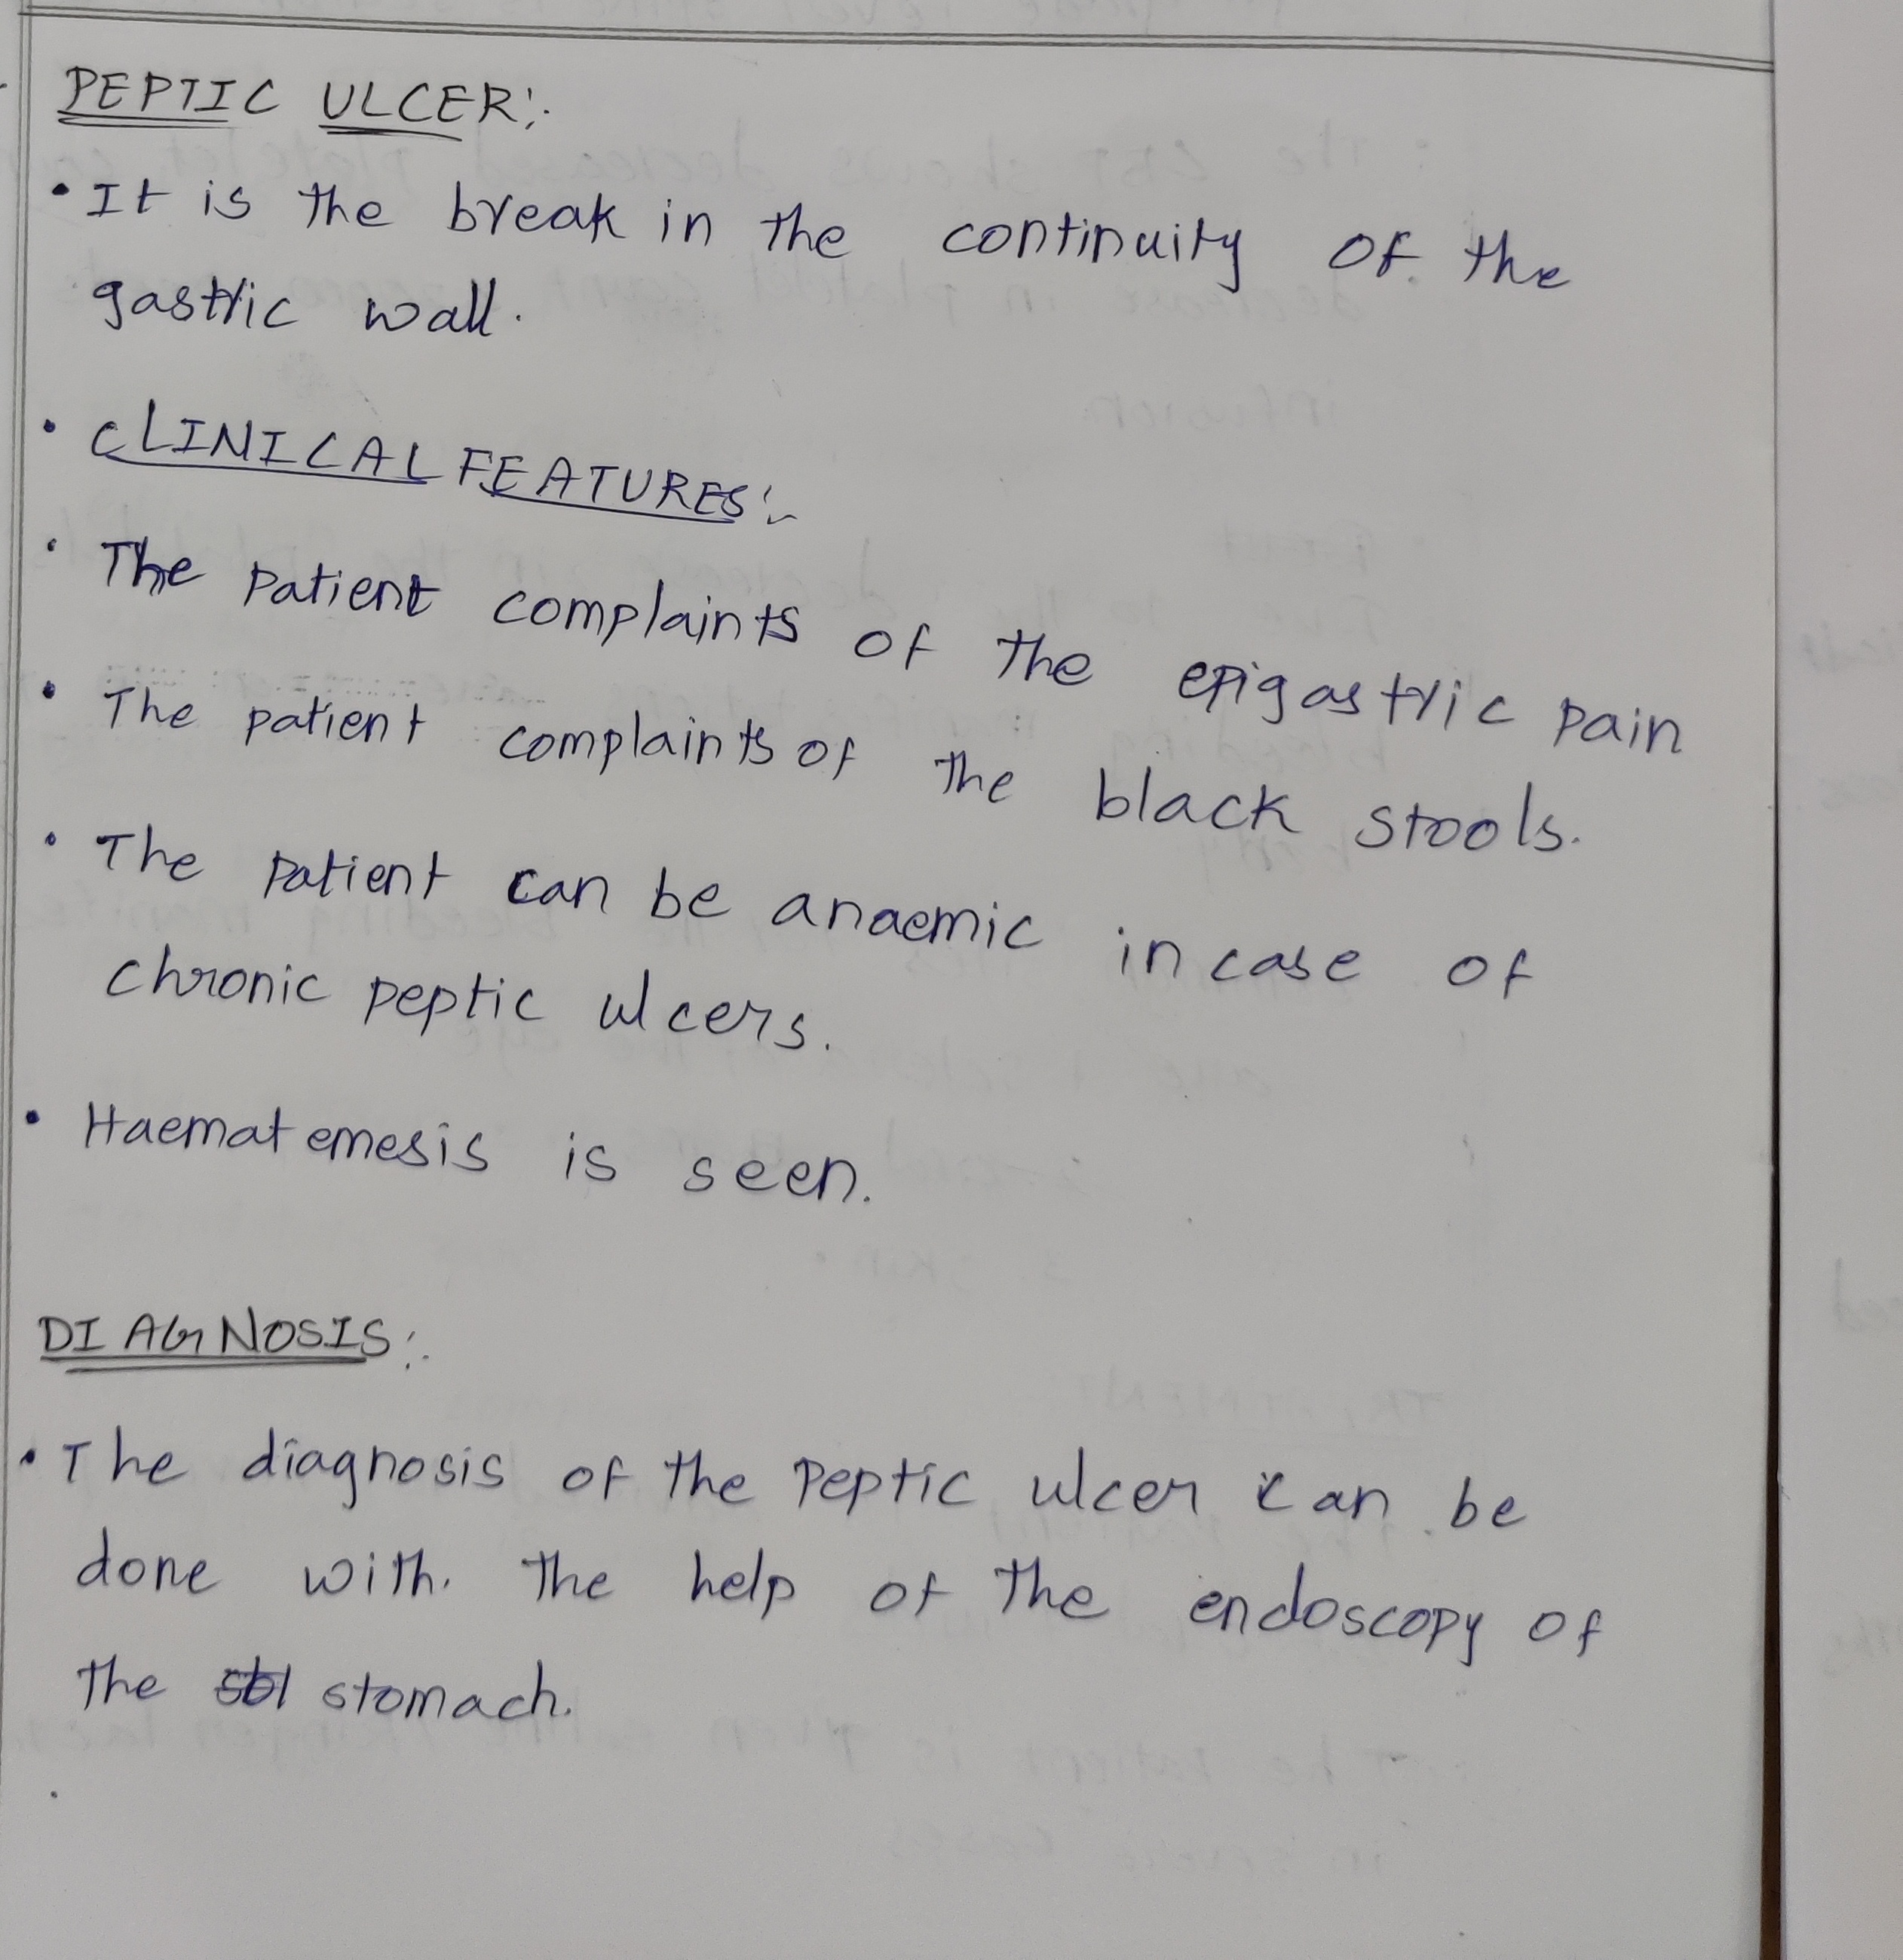 PEPTIC ULCER:-
• It is the break in the continuity of the
gastric wall.
• CLINICAL FEATURES:-
• The patient complaints of the epigastric pain
• The patient complaints of the black stools.
• The patient can be anaemic in case of
chronic peptic ulcers.
• Haematemesis is seen.
DIAGNOSIS:-
• The diagnosis of the peptic ulcer can be
done with the help of the endoscopy of
the stomach.